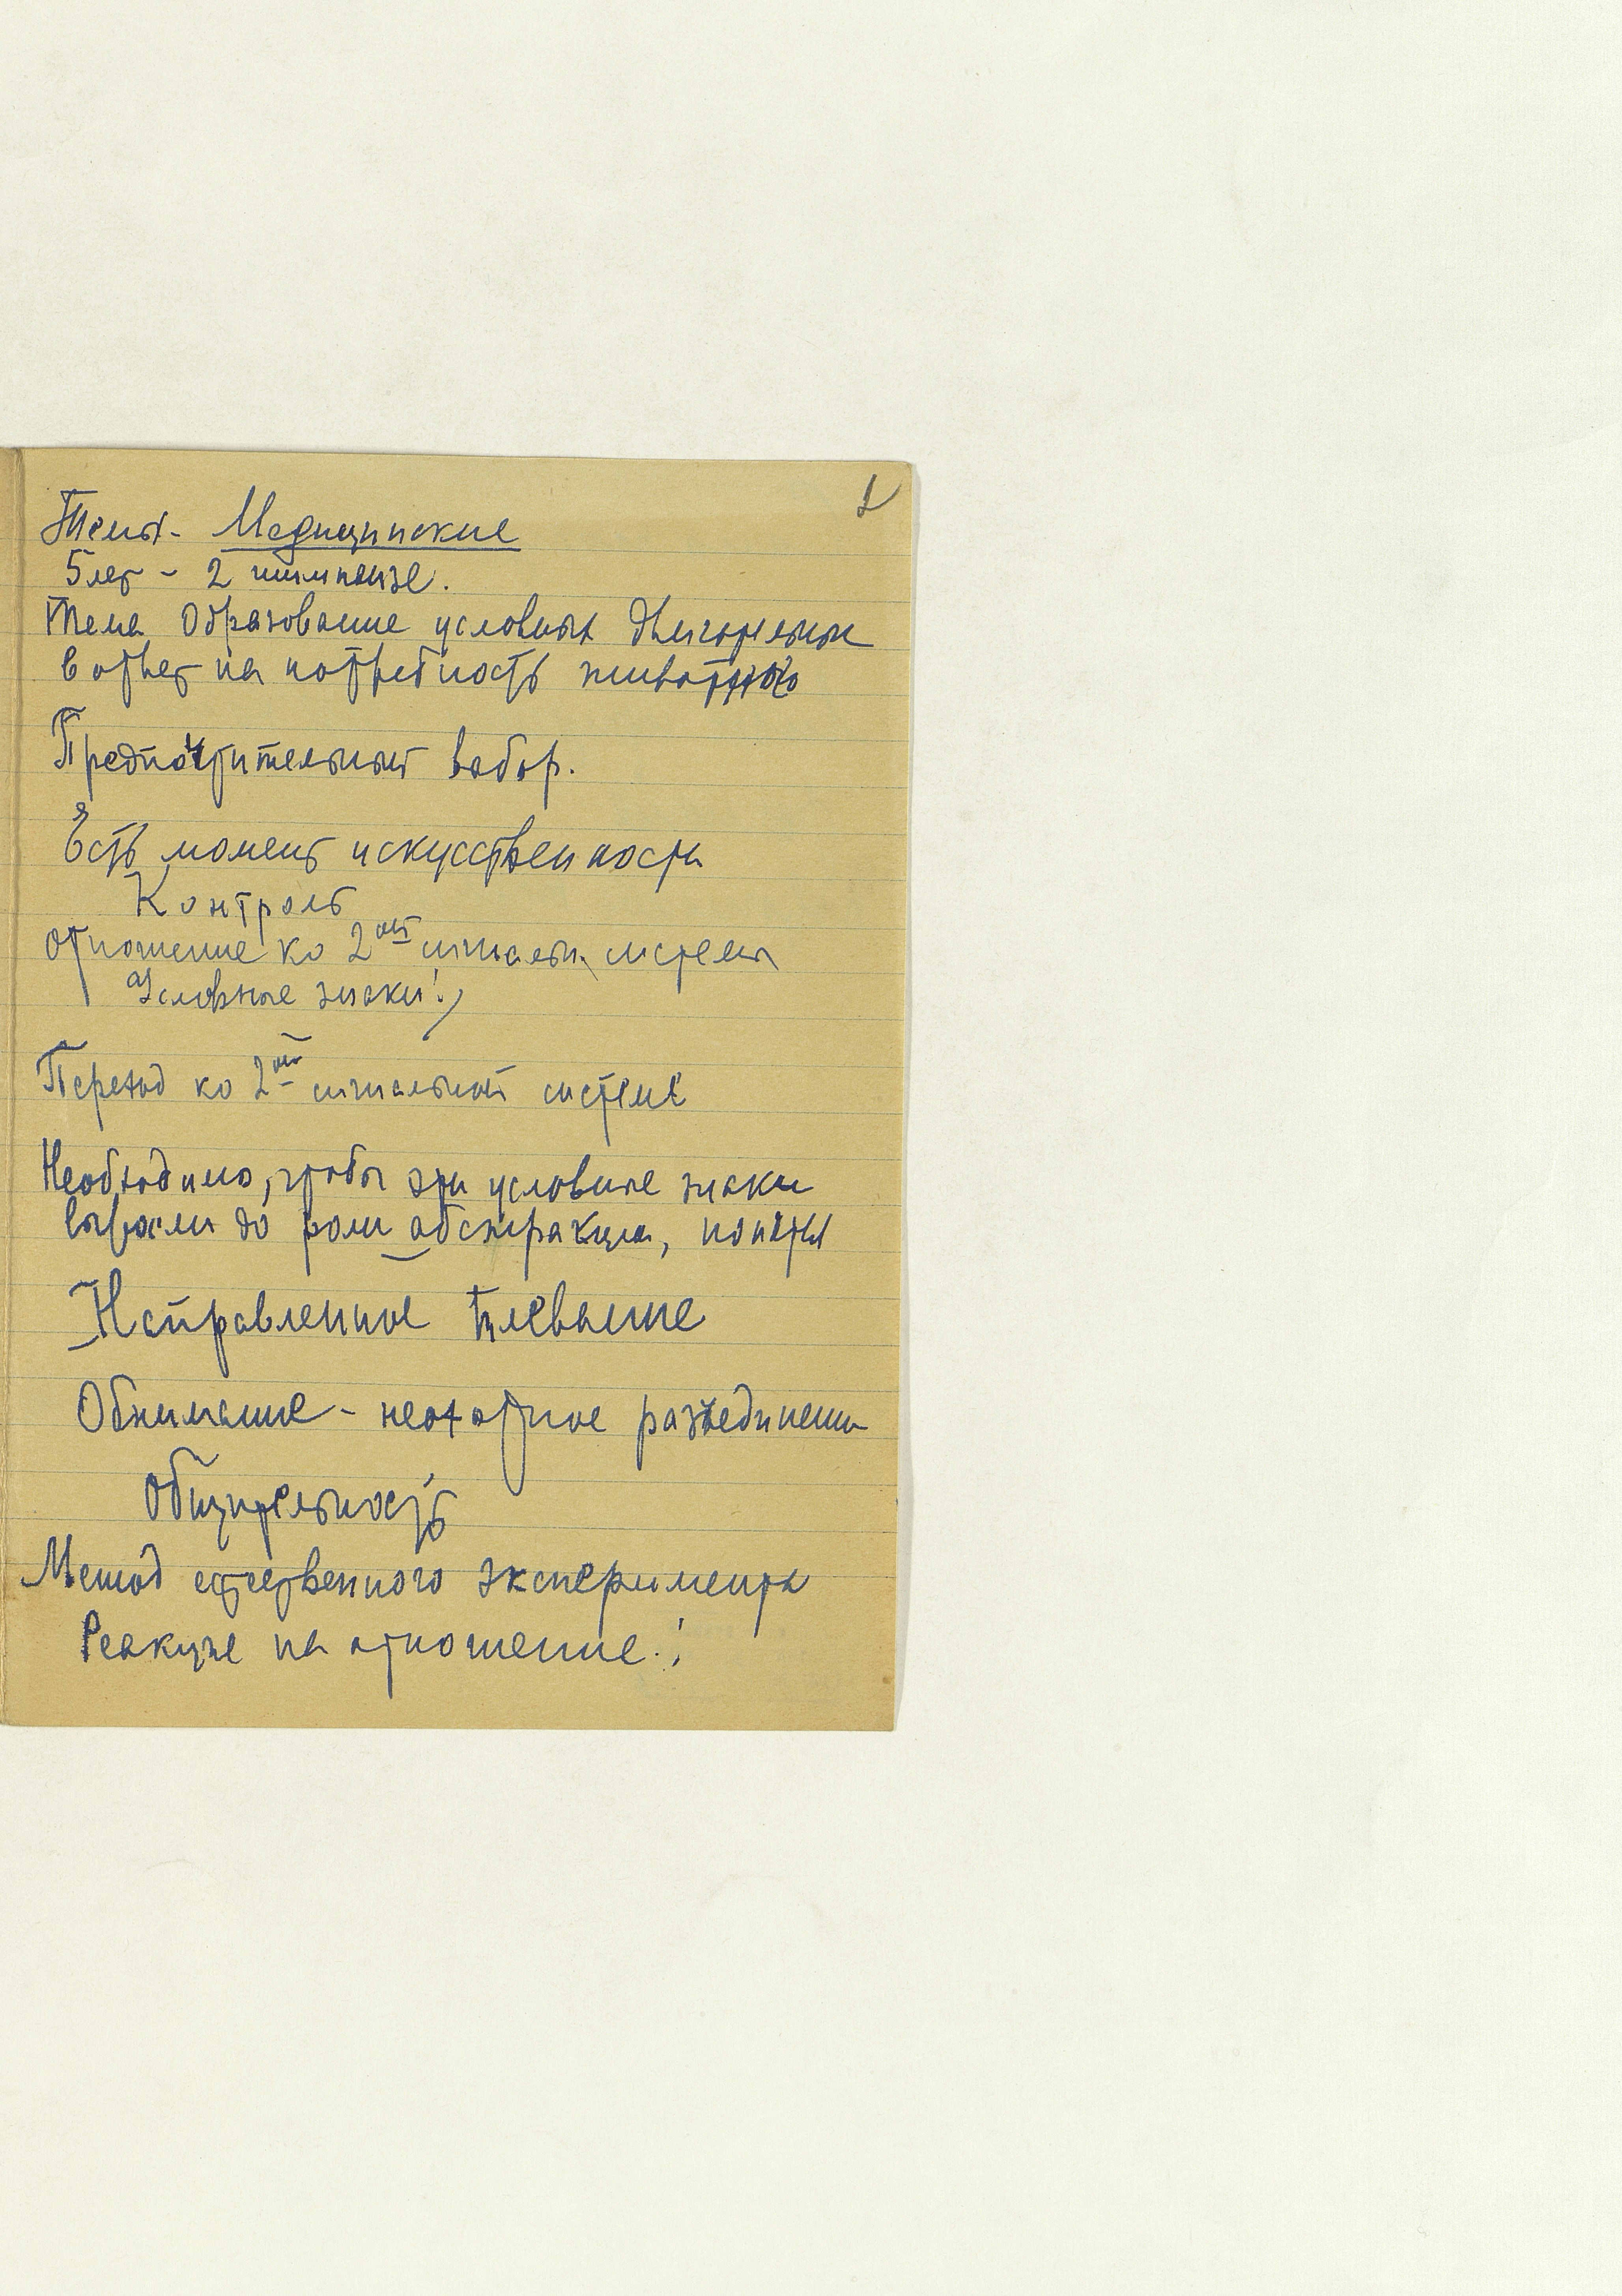 Темы - Медицинские
5 лет - 2 шимпанзе.
Тема Образование условных двигательных
в ответ на потребность животного
Предпочтительный выбор.
Есть момент искусственности
Контроль
Отношение ко 2ой сигнальн. системы
Условные знаки!
Переход ко 2ой сигнальной системе
Необходимо, чтобы эти условные знаки
выросли до роли абстракции, понятия
Направленное плевание
Обнимание - неохотное разъединение
Общительность
Метод естественного эксперимента
Реакция на отношение!